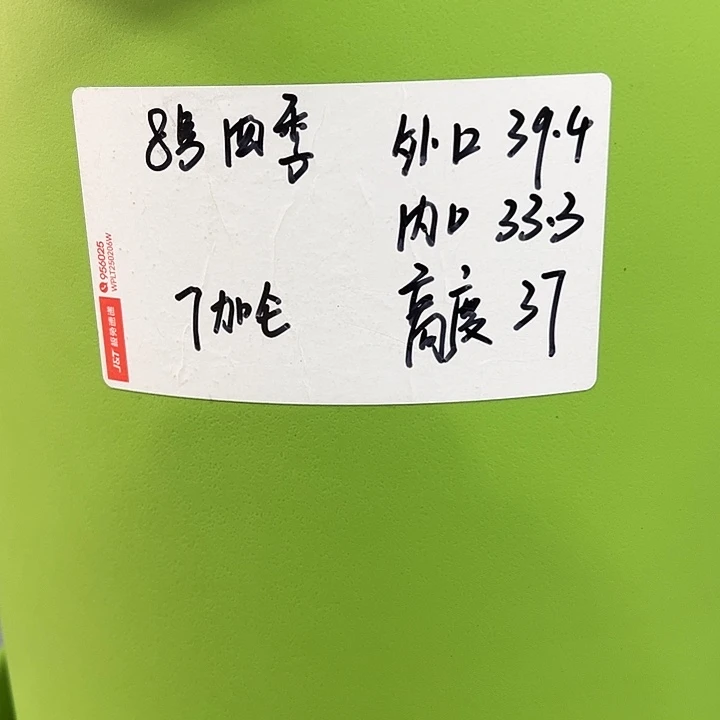 8号四季
外口 39.4
内口 33.3
7加仑
高度 37
956025
WPLT250206W
J&T 极兔速递